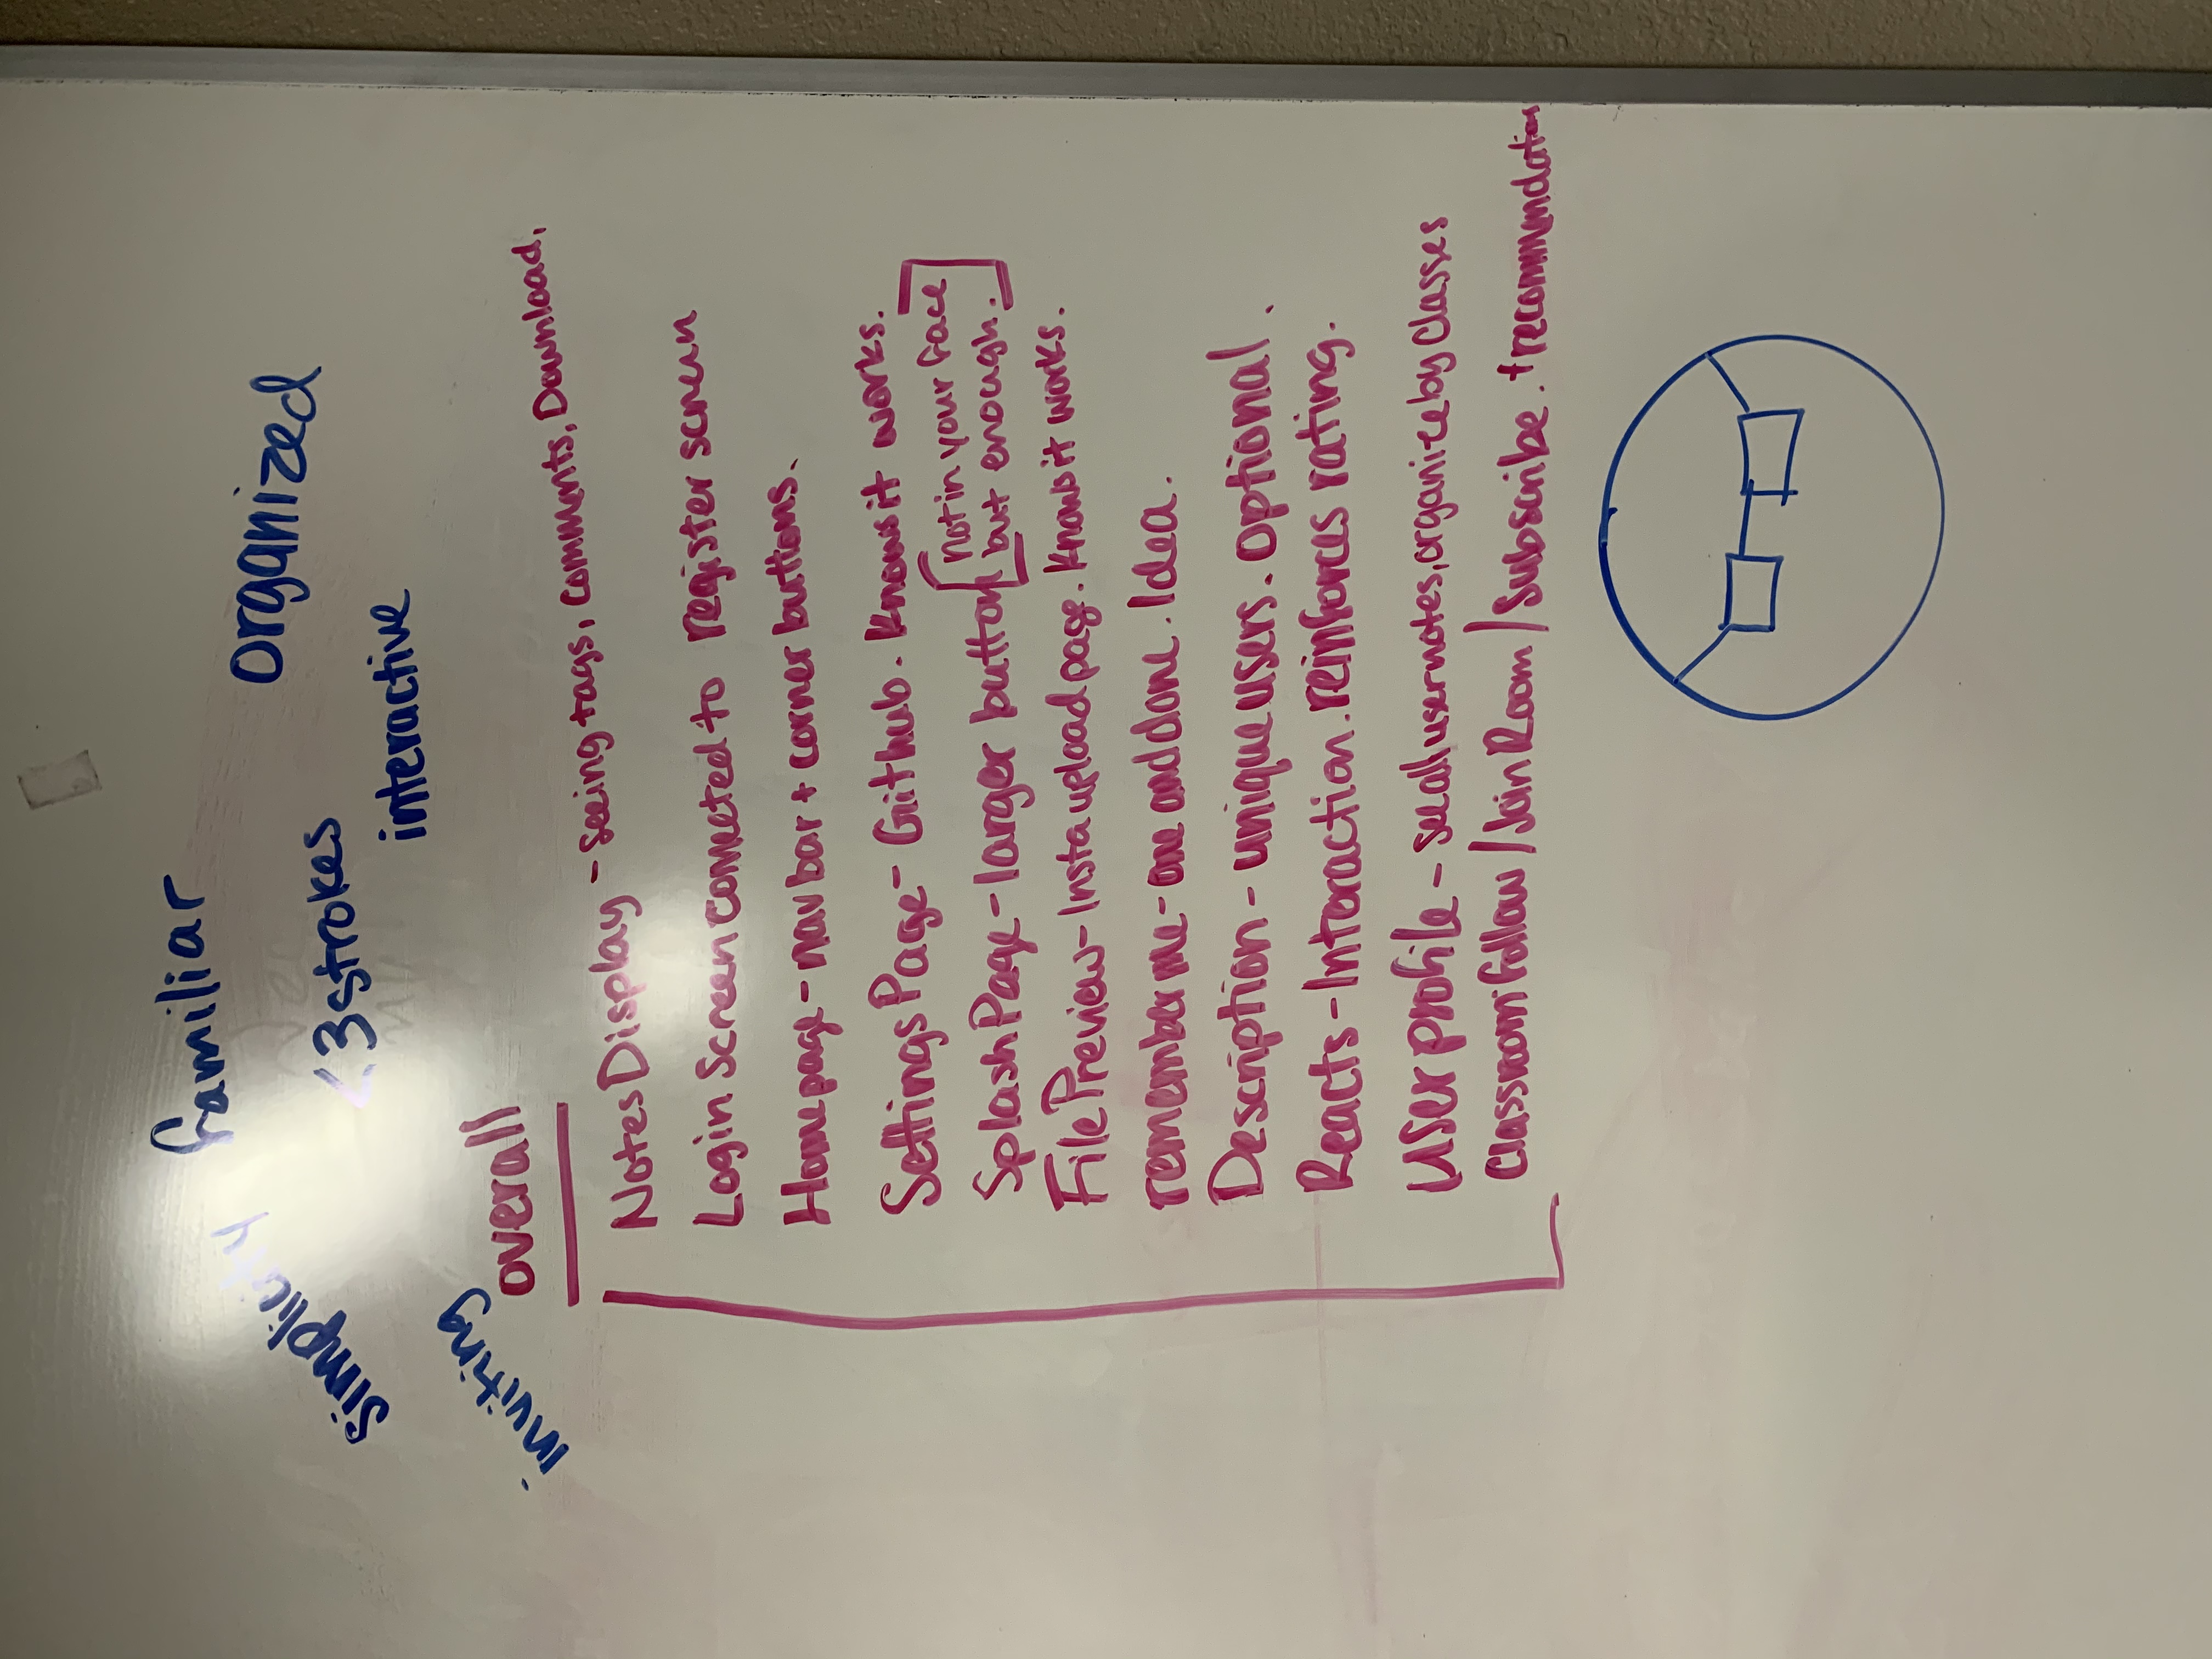 familiar
simplicity
organized
<3 strokes
interactive
inviting
overall
Notes Display - seeing tags, comments, Download,
Login Screen connected to register screen
Homepage - nav bar + corner buttons.
Settings Page - Github. Knows it works.
Splash Page - larger button [not in your face
but enough.]
File Preview - Insta upload page. Knows it works.
remember me - one and done. Idea.
Description - unique users. optional.
Reacts - Interaction. reinforces rating.
User profile - see all user notes, organize by classes
Classroom: follow / Join Room / Subscribe. + recommendations